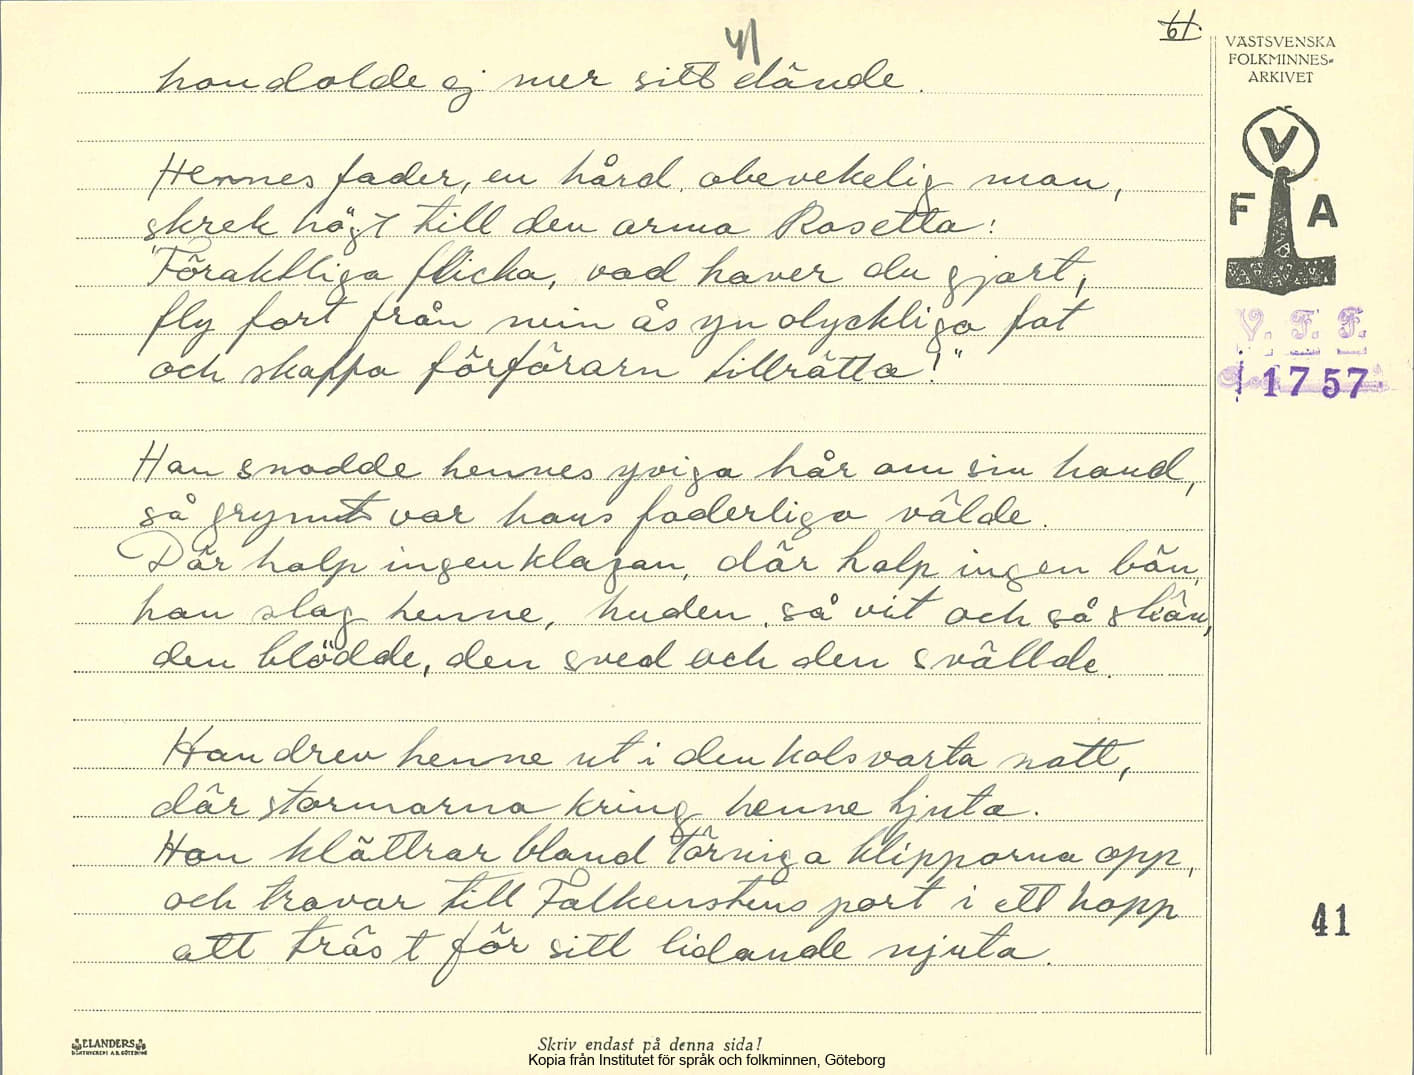 41
61.
hon dolde ej mer sitt elände.
Hennes fader, en hård, obevekelig man,
skrek högt till den arma Rosetta:
"Föraktliga flicka, vad haver du gjort,
fly fort från min åsyn olyckliga fat
och skaffa förförarn tillrätta!"
Han snodde hennes yviga hår om sin hand,
så grymt var hans faderliga välde.
Där halp ingen klagan, där halp ingen bön,
han slog henne, huden, så vit och så skön,
den blödde, den sved och den svällde.
Han drev henne ut i den kolsvarta natt,
där stormarna kring henne tjuta.
Hon klättrar bland törniga klipporna opp,
och travar till Falkenstens port i ett hopp
att tröst för sitt lidande njuta.
VÄSTSVENSKA
FOLKMINNES-
ARKIVET
V
F A
V. F. F.
1757
41
ELANDERS
BOKTRYCKERI A.B. GÖTEBORG
Skriv endast på denna sida!
Kopia från Institutet för språk och folkminnen, Göteborg